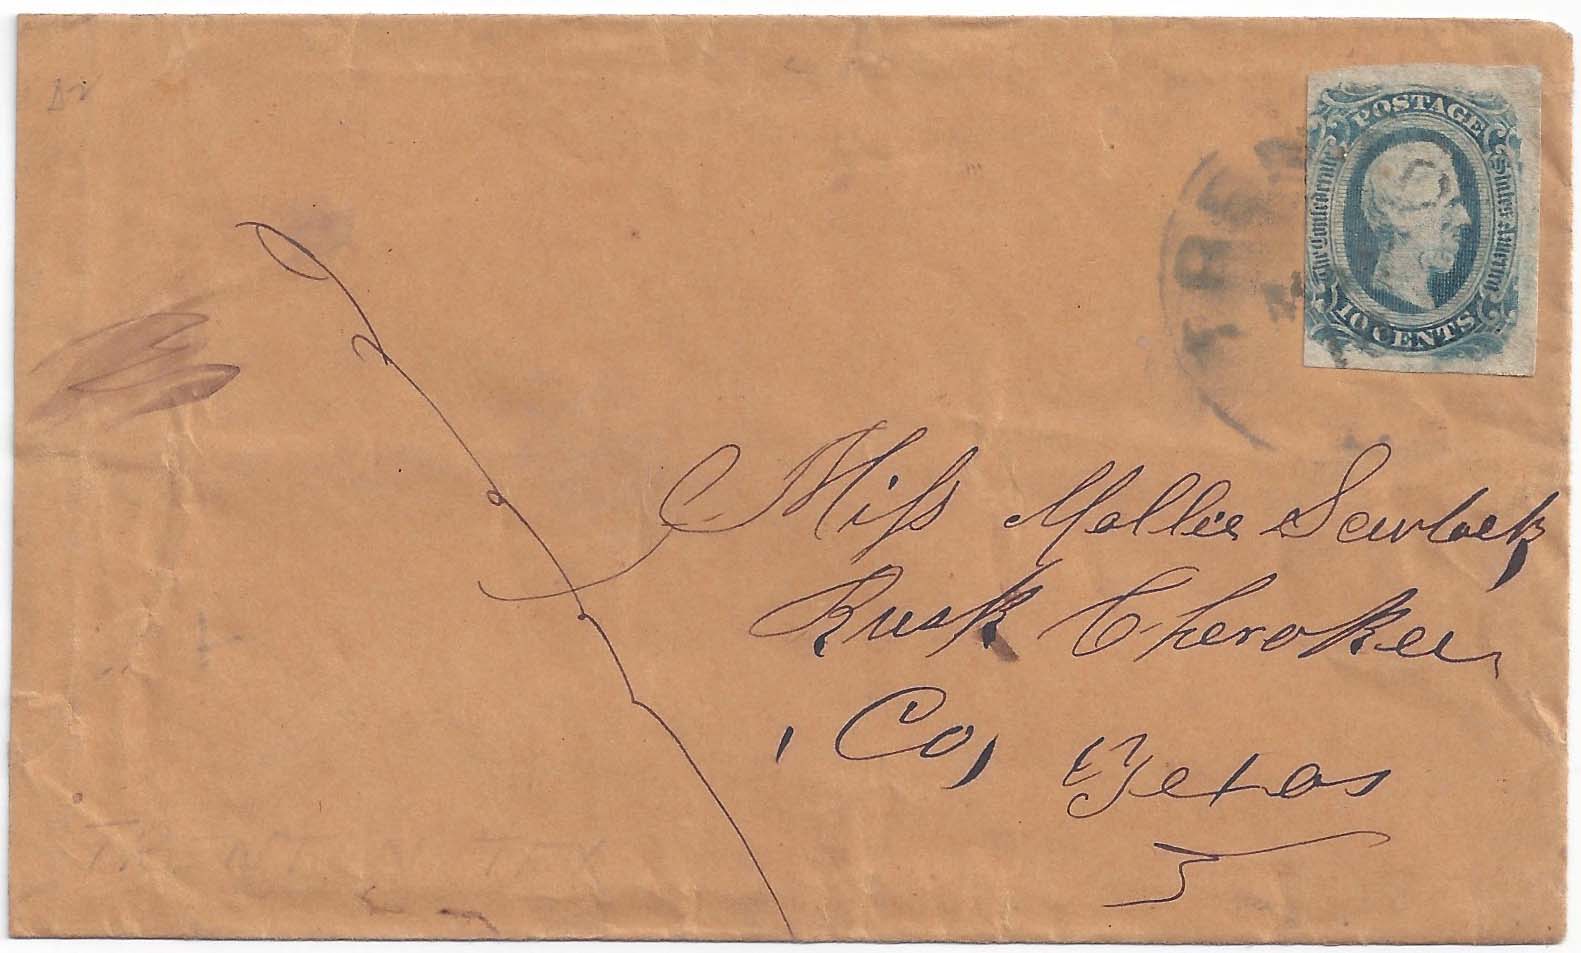 POSTAGE
The Confederate States America
10 CENTS
Miss Mollie Scurlock,
Rusk Cherokee
Co, Texas
TEX